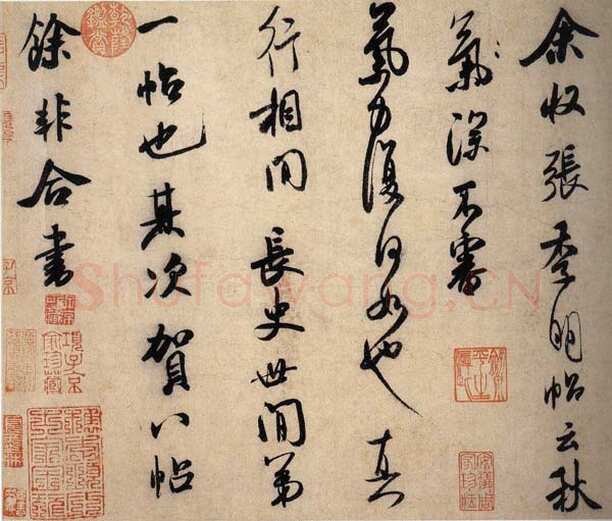 余收張季明帖云秋
氣深不審
氣力復何如也真
行相間長史世間第
一帖也其次賀八帖
餘非合書
項子京家珍藏
Shufawang.CN